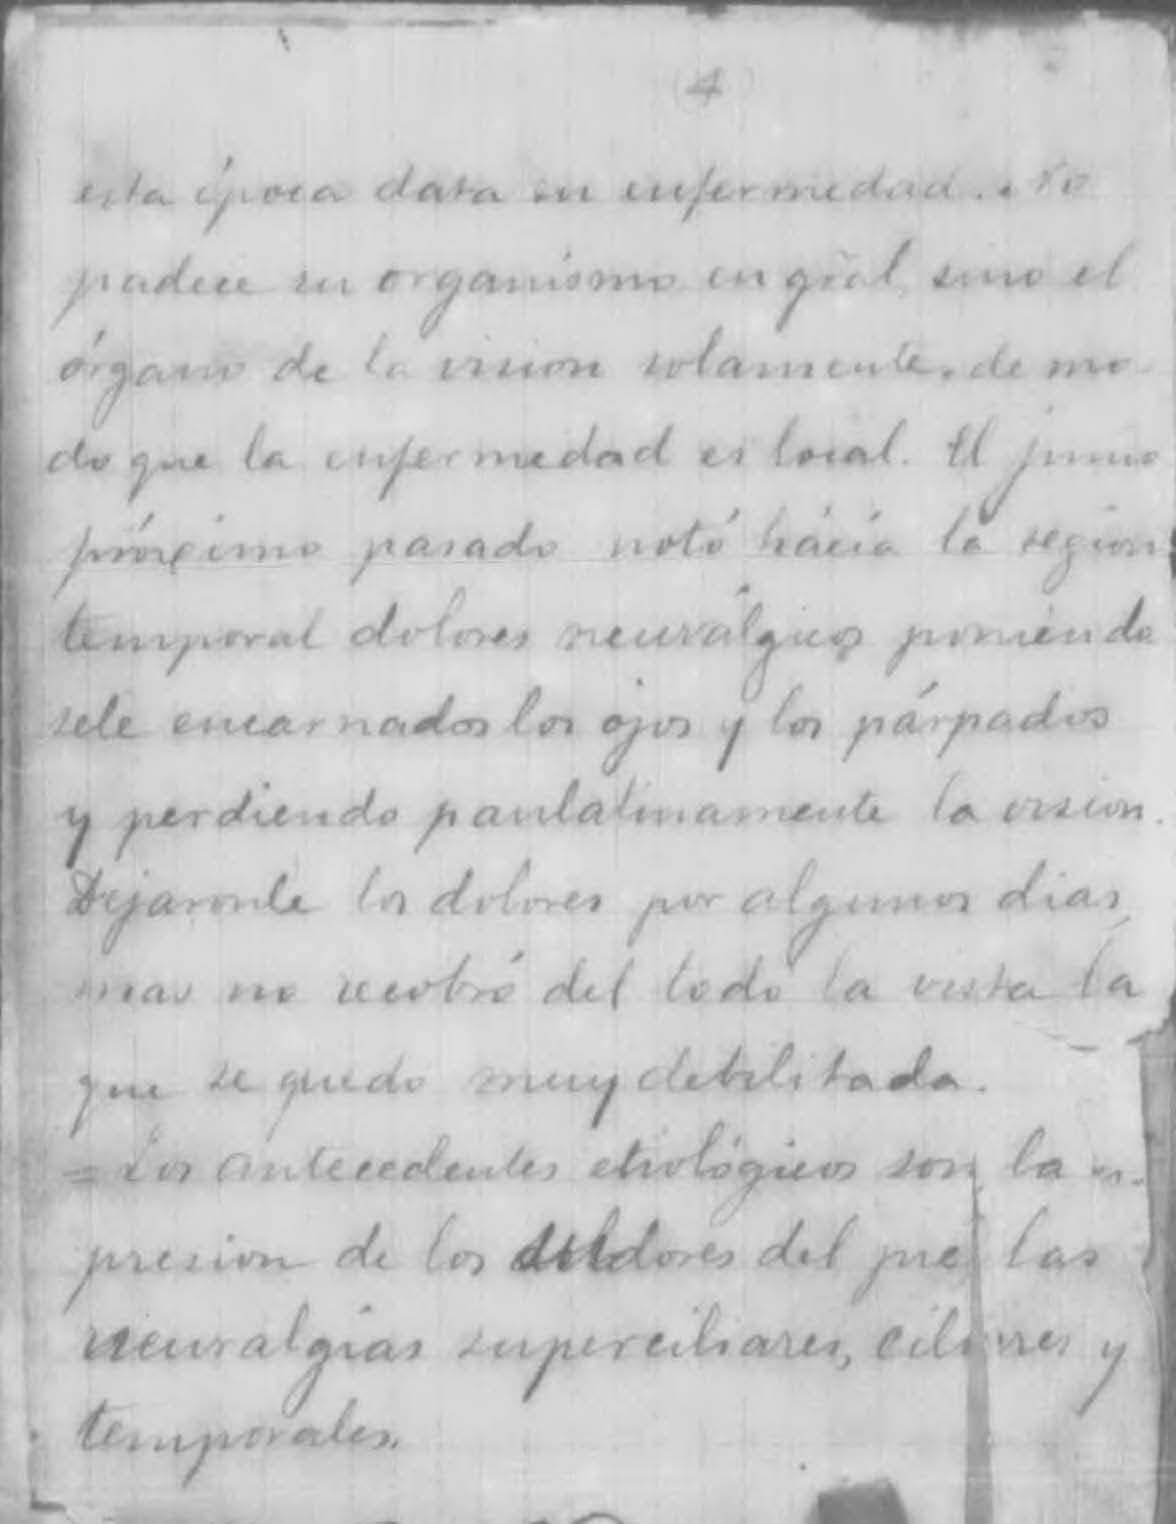 (4)
esta época data su enfermedad. No
padece su organismo en gral, sino el
órgano de la vision solamente, de mo-
do que la enfermedad es local. El junio
próximo pasado notó hácia la region
temporal dolores neurálgicos poniendo
sele encarnados los ojos y los párpados
y perdiendo paulatinamente la vision.
Dejaronle los dolores por algunos dias,
mas no recobró del todo la vista la
que se quedo muy debilitada.
= Los antecedentes etiológicos son la
presion de los del las
neuralgias superciliares, ciliares y
temporales.